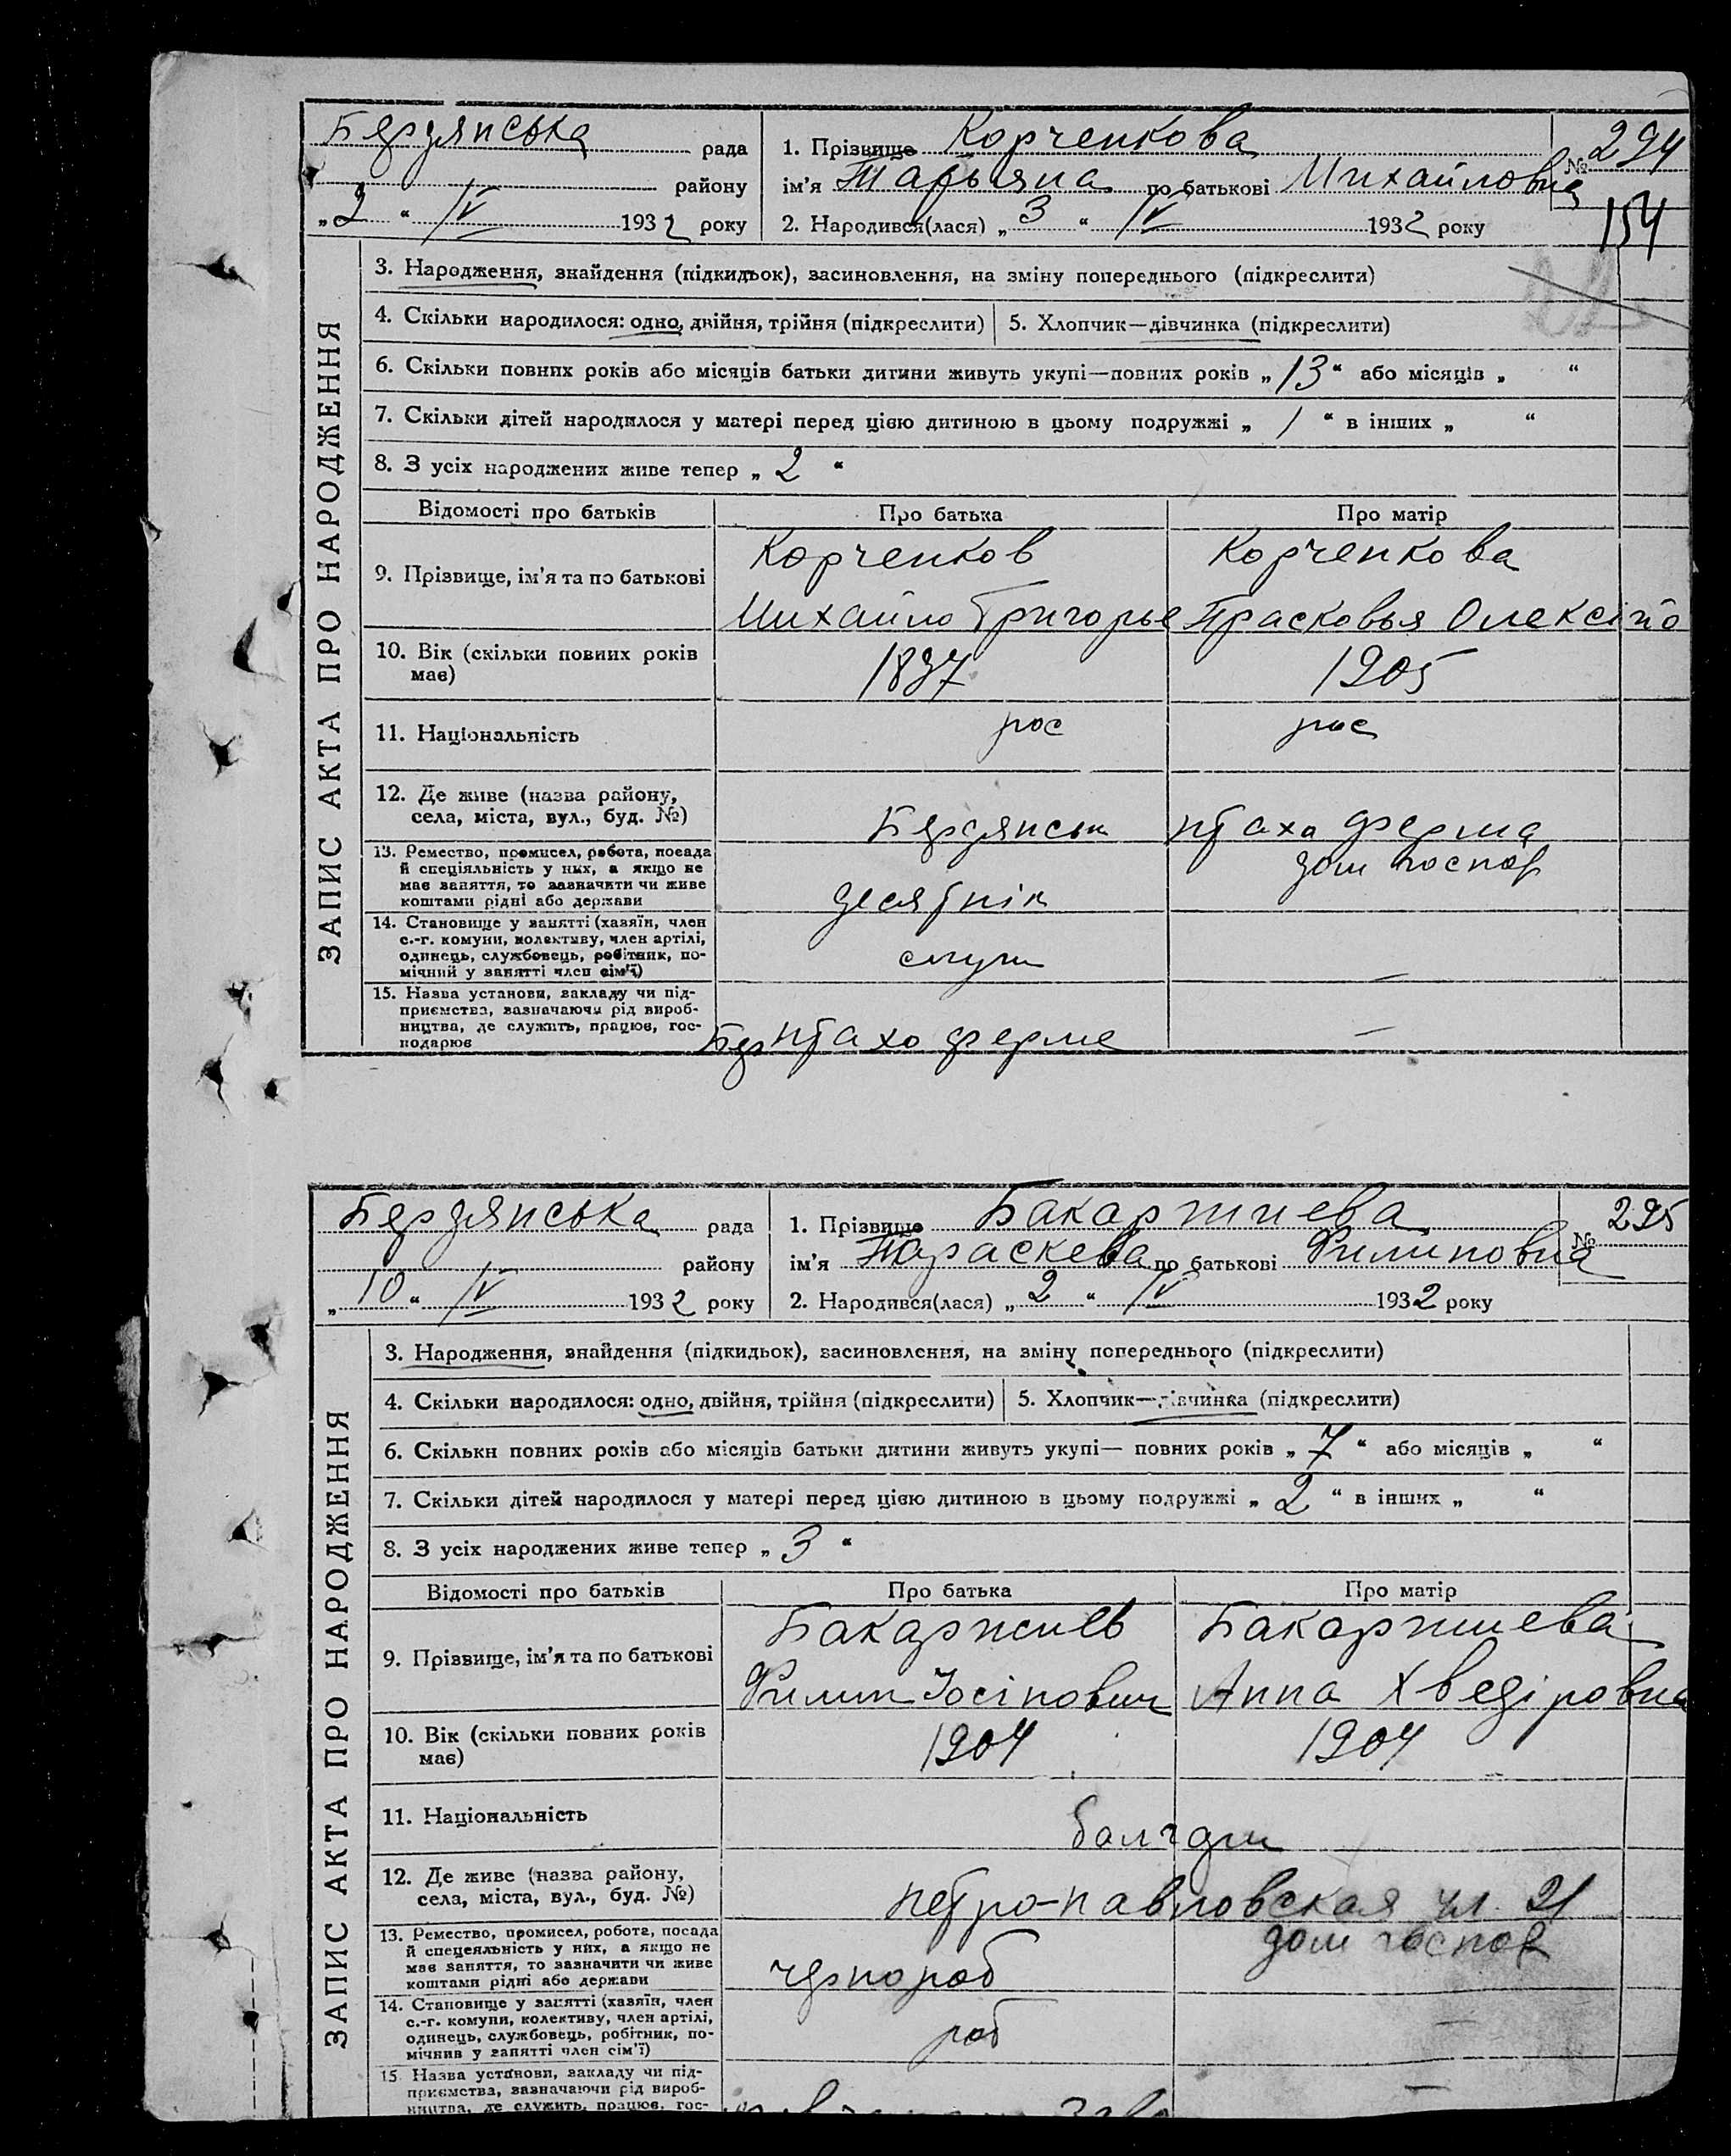 Бердянська рада 1. Прізвище Корченкова № 294
району ім'я Татьяна по батькові Михайловна
„2“ IV 1932 року 2. Народився(лася) „3“ IV 1932 року 154
ЗАПИС АКТА ПРО НАРОДЖЕННЯ
3. Народження, знайдення (підкидьок), засиновлення, на зміну попереднього (підкреслити)
4. Скільки народилося: одно, двійня, трійня (підкреслити) 5. Хлопчик—дівчинка (підкреслити)
6. Скільки повних років або місяців батьки дитини живуть укупі—повних років „13“ або місяців „ “
7. Скільки дітей народилося у матері перед цією дитиною в цьому подружжі „1“ в інших „ “
8. З усіх народжених живе тепер „2“
Відомості про батьків Про батька Про матір
9. Прізвище, ім'я та по батькові Корченков Корченкова
Михайло Григорье Прасковья Олексійо
10. Вік (скільки повних років 1897 1905
має)
11. Національність рос рос
12. Де живе (назва району,
села, міста, вул., буд. №) Бердянськ птахо ферма
13. Ремество, промисел, робота, посада дом госпор
й спеціяльність у них, а якщо не
має заняття, то зазначити чи живе десятнік
коштами рідні або держави
14. Становище у занятті (хазяїн, член
с.-г. комуни, колективу, член артілі,
одинець, службовець, робітник, по- служ —
мічний у занятті член сім'ї)
15. Назва установи, закладу чи під-
приємства, зазначаючи рід вироб-
ництва, де служить, працює, гос- Бер птахо ферме —
подарює
Бердянська рада 1. Прізвище Бакаржиева № 295
району ім'я Параскева по батькові Филиповна
„10“ IV 1932 року 2. Народився(лася) „2“ IV 1932 року
ЗАПИС АКТА ПРО НАРОДЖЕННЯ
3. Народження, знайдення (підкидьок), засиновлення, на зміну попереднього (підкреслити)
4. Скільки народилося: одно, двійня, трійня (підкреслити) 5. Хлопчик—дівчинка (підкреслити)
6. Скільки повних років або місяців батьки дитини живуть укупі— повних років „7“ або місяців „ “
7. Скільки дітей народилося у матері перед цією дитиною в цьому подружжі „2“ в інших „ “
8. З усіх народжених живе тепер „3“
Відомості про батьків Про батька Про матір
9. Прізвище, ім'я та по батькові Бакаржиев Бакаржиева
Филип Іосіпович Анна Хведіровна
10. Вік (скільки повних років 1904 1904
має)
11. Національність болгари
12. Де живе (назва району,
села, міста, вул., буд. №) петро-павловская ул. 21
13. Ремество, промисел, робота, посада дом госпор
й спецеяльність у них, а якщо не
має заняття, то зазначити чи живе чернороб
коштами рідні або держави
14. Становище у занятті (хазяїн, член
с.-г. комуни, колективу, член артілі,
одинець, службовець, робітник, по- роб —
мічнив у занятті член сім'ї)
15. Назва установи, закладу чи під-
приємства, зазначаючи рід вироб- —
ництва, де служить, працює, гос-